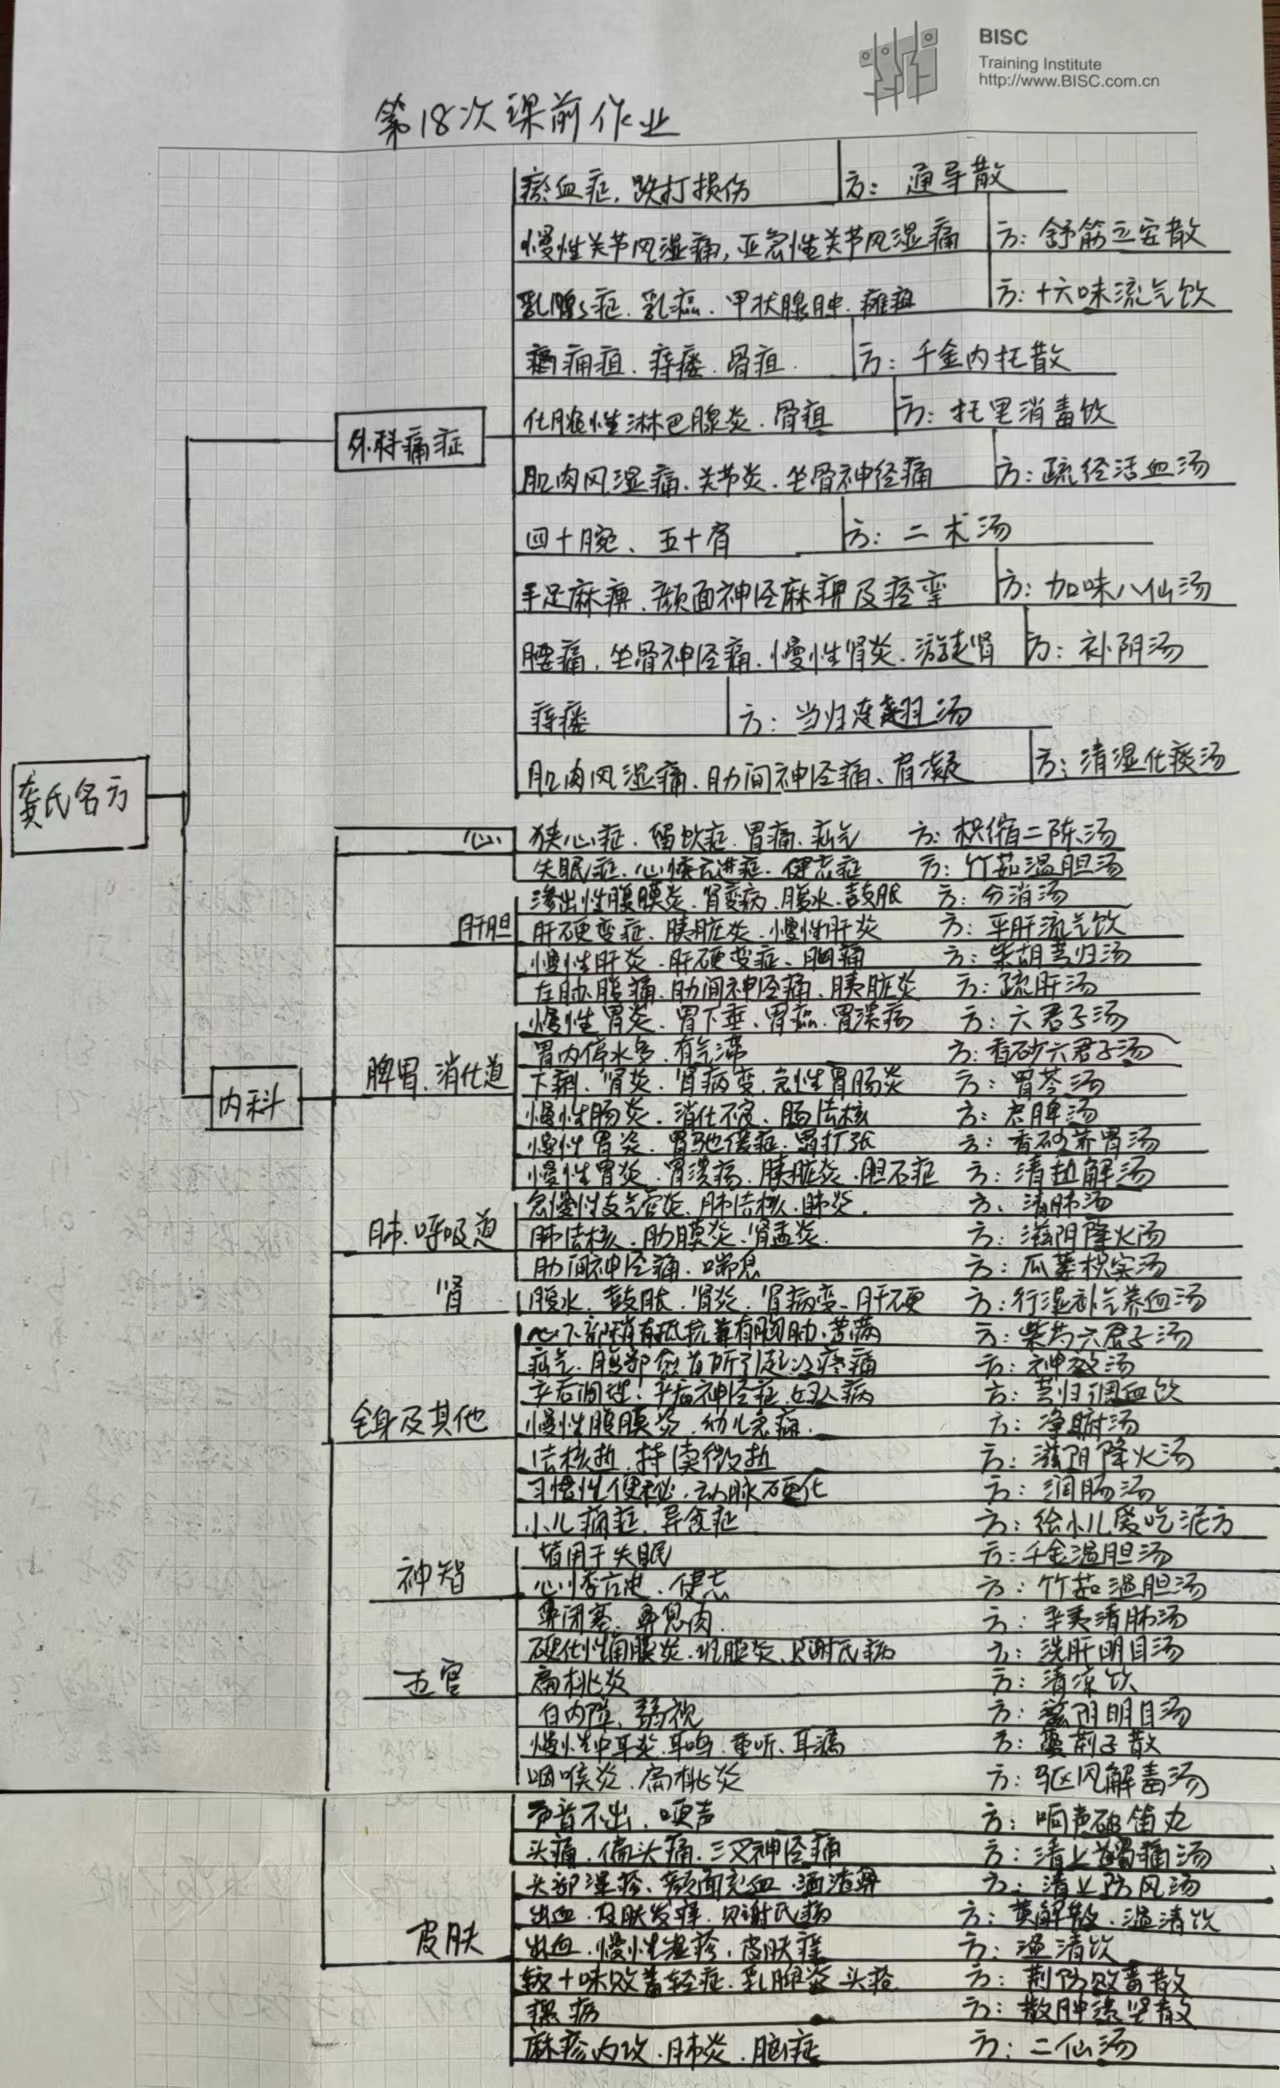 BISC
Training Institute
http://www.BISC.com.cn
第18次课前作业
龚氏名方
外科痛症
瘀血症，跌打损伤 方：通导散
慢性关节风湿痛，亚急性关节风湿痛 方：舒筋立安散
乳腺症、乳癌、甲状腺肿、瘫疽 方：十六味流气饮
痈疽、痔瘘、骨疽 方：千金内托散
化脓性淋巴腺炎、骨疽 方：托里消毒饮
肌肉风湿痛、关节炎、坐骨神经痛 方：疏经活血汤
四十腕、五十肩 方：二术汤
手足麻痹、颜面神经麻痹及痉挛 方：加味八仙汤
腰痛、坐骨神经痛、慢性肾炎、游走肾 方：补阴汤
痔瘘 方：当归连翘汤
肌肉风湿痛、肋间神经痛、肩凝 方：清湿化痰汤
内科
心 狭心症、留饮症、胃痛、疝气 方：枳缩二陈汤
失眠症、心悸亢进症、健忘症 方：竹茹温胆汤
肝胆 渗出性腹膜炎、肾变病、腹水、鼓胀 方：分消汤
肝硬变症、胰脏炎、慢性肝炎 方：平肝流气饮
慢性肝炎、肝硬变症、胸痛 方：柴胡芎归汤
左肋腹痛、肋间神经痛、胰脏炎 方：疏肝汤
脾胃、消化道 慢性胃炎、胃下垂、胃癌、胃溃疡 方：六君子汤
胃内停水多，有气滞 方：香砂六君子汤
下痢、肾炎、肾病变、急性胃肠炎 方：胃苓汤
慢性肠炎、消化不良、肠结核 方：启脾汤
慢性胃炎、胃弛缓症、胃扩张 方：香砂养胃汤
慢性胃炎、胃溃疡、胰脏炎、胆石症 方：清热解汤
肺、呼吸道 急慢性支气管炎、肺结核、肺炎 方：清肺汤
肺结核、肋膜炎、肾盂炎 方：滋阴降火汤
肋间神经痛、喘息 方：瓜蒌枳实汤
肾 腹水、鼓胀、肾炎、肾病变、肝硬 方：行湿补气养血汤
全身及其他 心下部稍有抵抗兼有胸肋苦满 方：柴芍六君子汤
疝气、腹部 所引起冷疼痛 方：神效汤
产后 、产后神经症、妇人病 方：芎归调血饮
慢性腹膜炎、幼儿急痫 方：净腑汤
结核热、持续微热 方：滋阴降火汤
习惯性便秘、动脉硬化 方：润肠汤
小儿 症、异食症 方：给小儿爱吃泥方
神智 用于失眠 方：千金温胆汤
心悸亢进、健忘 方：竹茹温胆汤
五官 鼻闭塞、鼻息肉 方：辛夷清肺汤
硬化性角膜炎、巩膜炎、贝谢氏病 方：洗肝明目汤
扁桃炎 方：清凉饮
白内障、弱视 方：滋阴明目汤
慢性中耳炎、耳鸣、重听、耳漏 方：蔓荆子散
咽喉炎、扁桃炎 方：驱风解毒汤
声音不出、哑声 方：响声破笛丸
头痛、偏头痛、三叉神经痛 方：清上蠲痛汤
皮肤 头部湿疹、颜面充血、酒渣鼻 方：清上防风汤
出血、皮肤发痒、贝谢氏病 方：黄解散、温清饮
出血、慢性湿疹、皮肤痒 方：温清饮
较十味败毒轻症、乳腺炎、头疮 方：荆防败毒散
瘰疬 方：散肿溃坚散
麻疹内攻、肺炎、脑症 方：二仙汤